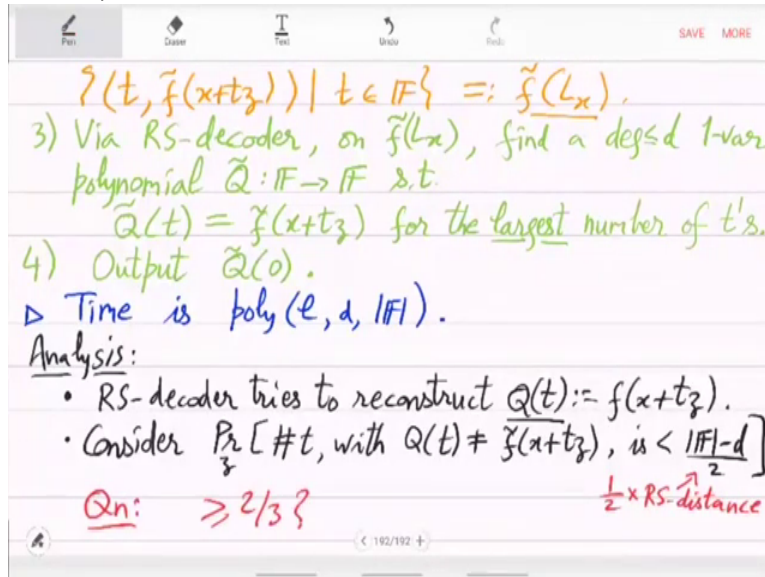 Pen Eraser Text Undo Redo SAVE MORE
{(t, f̃(x+tz)) | t ∈ 𝔽} =: f̃(Lₓ).
3) Via RS-decoder, on f̃(Lₓ), find a deg≤d 1-var
polynomial Q̃ : 𝔽 → 𝔽 s.t.
Q̃(t) = f̃(x+tz) for the largest number of t's.
4) Output Q̃(0).
▷ Time is poly(ℓ, d, |𝔽|).
Analysis:
• RS-decoder tries to reconstruct Q(t) := f(x+tz).
• Consider Pr_z [#t, with Q(t) ≠ f̃(x+tz), is < (|𝔽|-d)/2]
1/2 × RS-distance
Qn: ≥ 2/3 ?
< 192/192 +